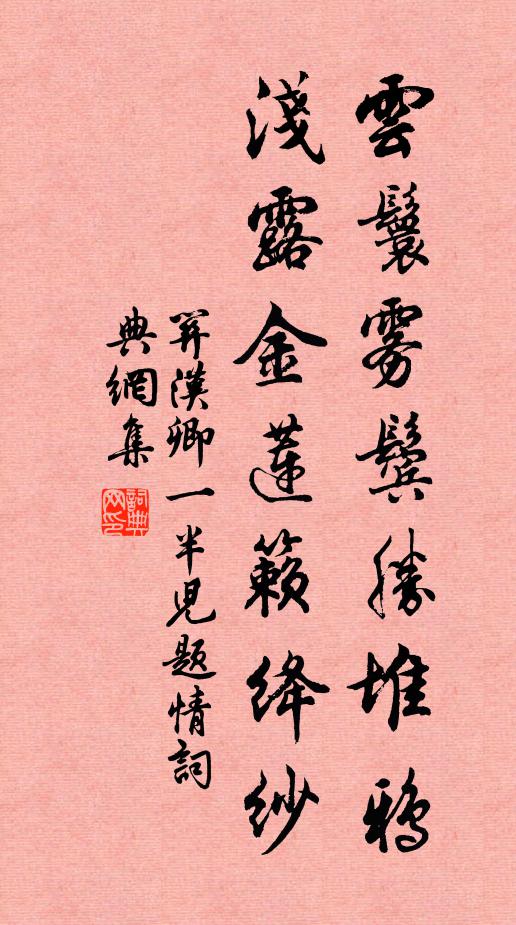 雲鬟雾鬢勝堆鴉
淺露金蓮簌絳紗
関漢卿一半児题情詞
典網集
詞典網印